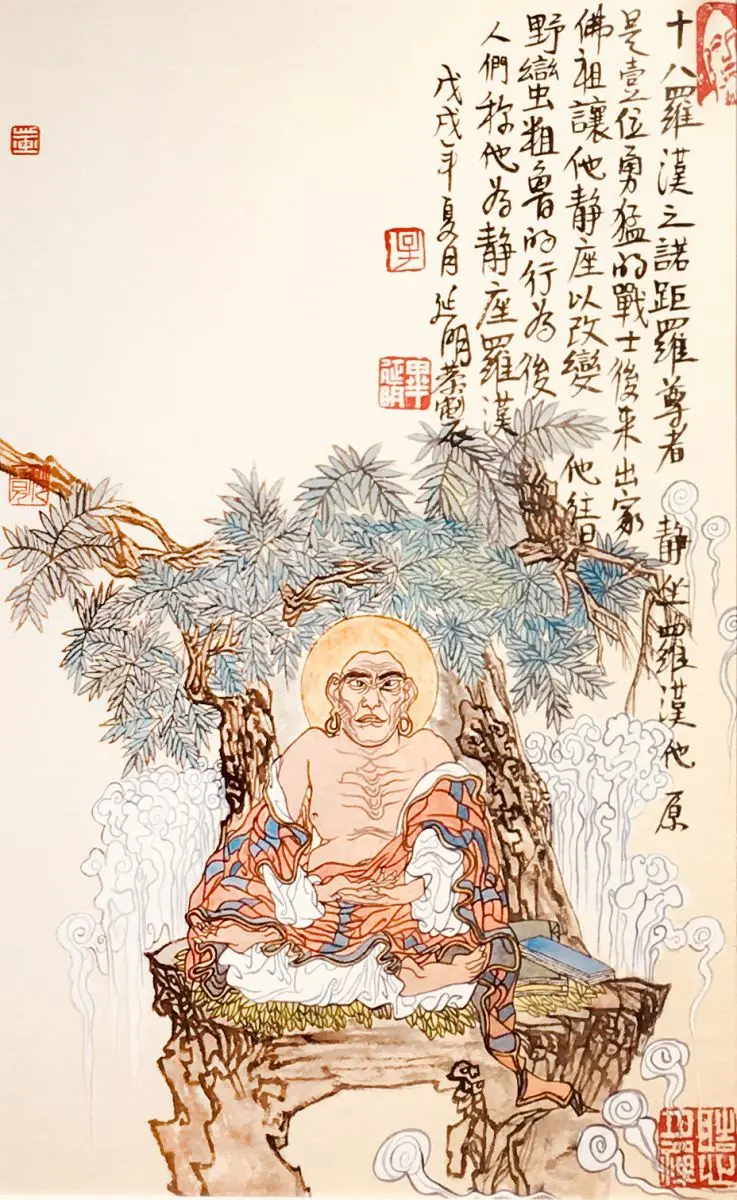 十八羅漢之諾距羅尊者 靜坐羅漢他 原
是壹位勇猛的戰士後来出家
佛祖讓他靜座以改變 他往日
野蠻粗魯的行為後
人們称他為靜座羅漢
戊戌年夏月延明恭製
畢延明